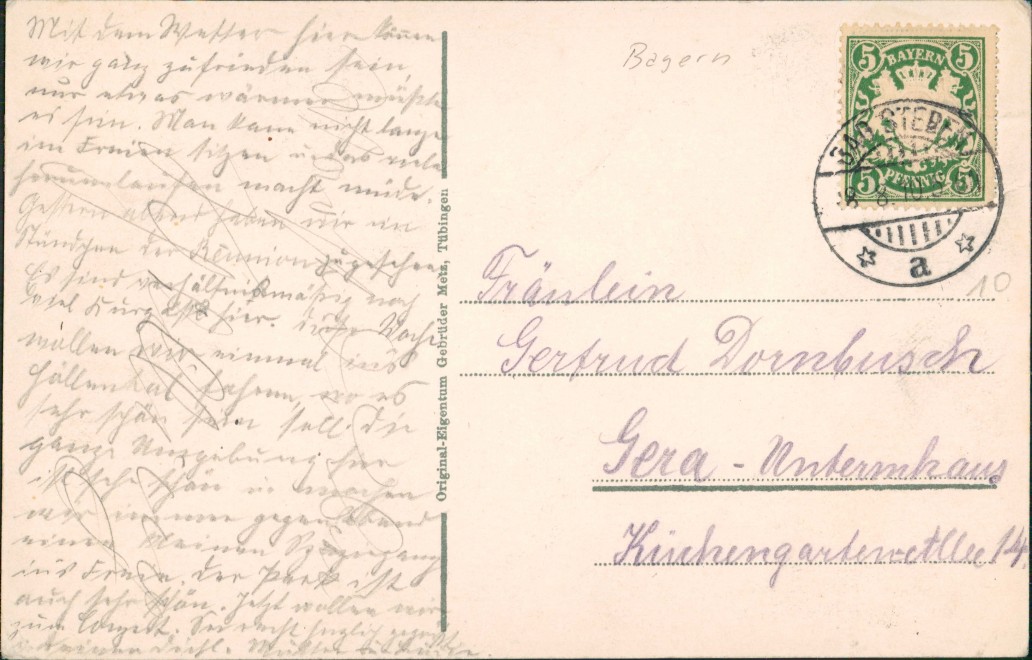 Mit dem Wetter hier können
wir ganz zufrieden sein,
nur etwas wärmer müßte
es sein. Man kann nicht lange
im Freien sitzen u. das viele
herumlaufen macht müde.
Gestern abend haben wir ein
Stündchen der Reunion zugesehen.
Es sind verhältnismäßig noch
viel Kurgäste hier. Diese Woche
wollen wir einmal ins
Höllental fahren, wo es
sehr schön sein soll. Die
ganze Umgebung hier
ist sehr schön u. machen
wir immer gegen Abend
einen kleinen Spaziergang
ins Freie. Der Park ist
auch sehr schön. Jetzt wollen wir
zum Conzert. Sei recht herzlich gegrüßt
Mutter
Original-Eigentum Gebrüder Metz, Tübingen
Bayern
5 BAYERN 5
5 PFENNIG 5
BAD STEBEN
8 10
a
10
Fräulein
Gertrud Dornbusch
Gera - Untermhaus
Küchengartenallee 14